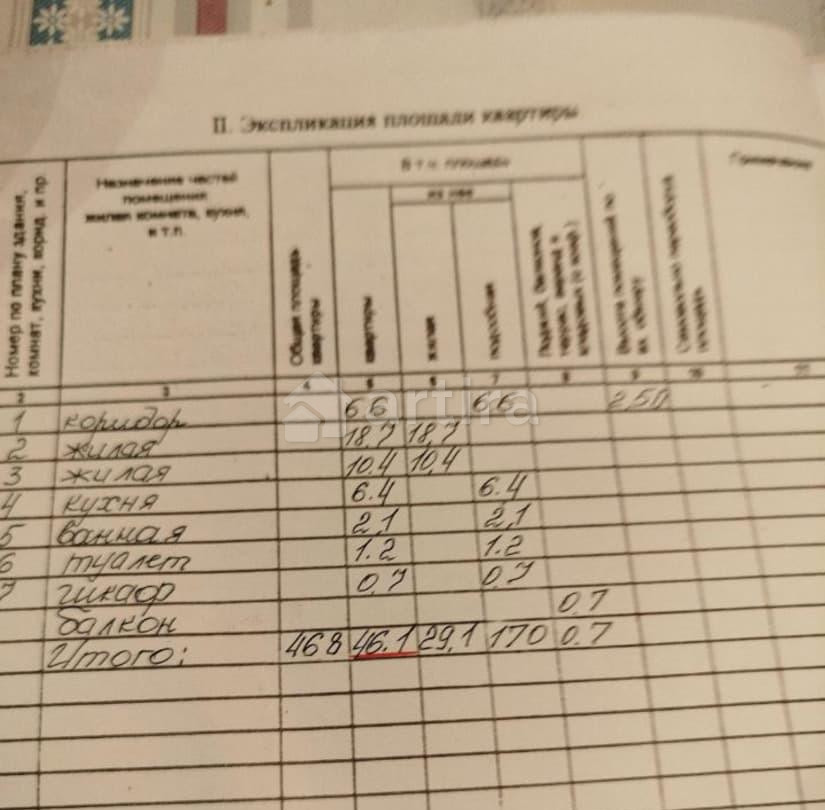 II. Экспликация площади квартиры
Номер по плану здания, комнат, кухни, корид. и пр.
Назначение частей
помещения
жилая комната, кухня,
и т.п.
Общая площадь
квартиры
В т.ч. площадь
квартиры
из нее
жилая
подсобная
Высота помещений по
Самовольно
площадь
Примечание
2 3 4 5 6 7 8 9 10 11
1 коридор 6.6 6.6 2.50
2 жилая 18,7 18,7
3 жилая 10.4 10,4
4 кухня 6.4 6.4
5 ванная 2,1 2,1
6 туалет 1.2 1.2
7 шкаф 0,7 0,7
балкон 0,7
Итого: 468 46.1 29,1 170 0.7
artira